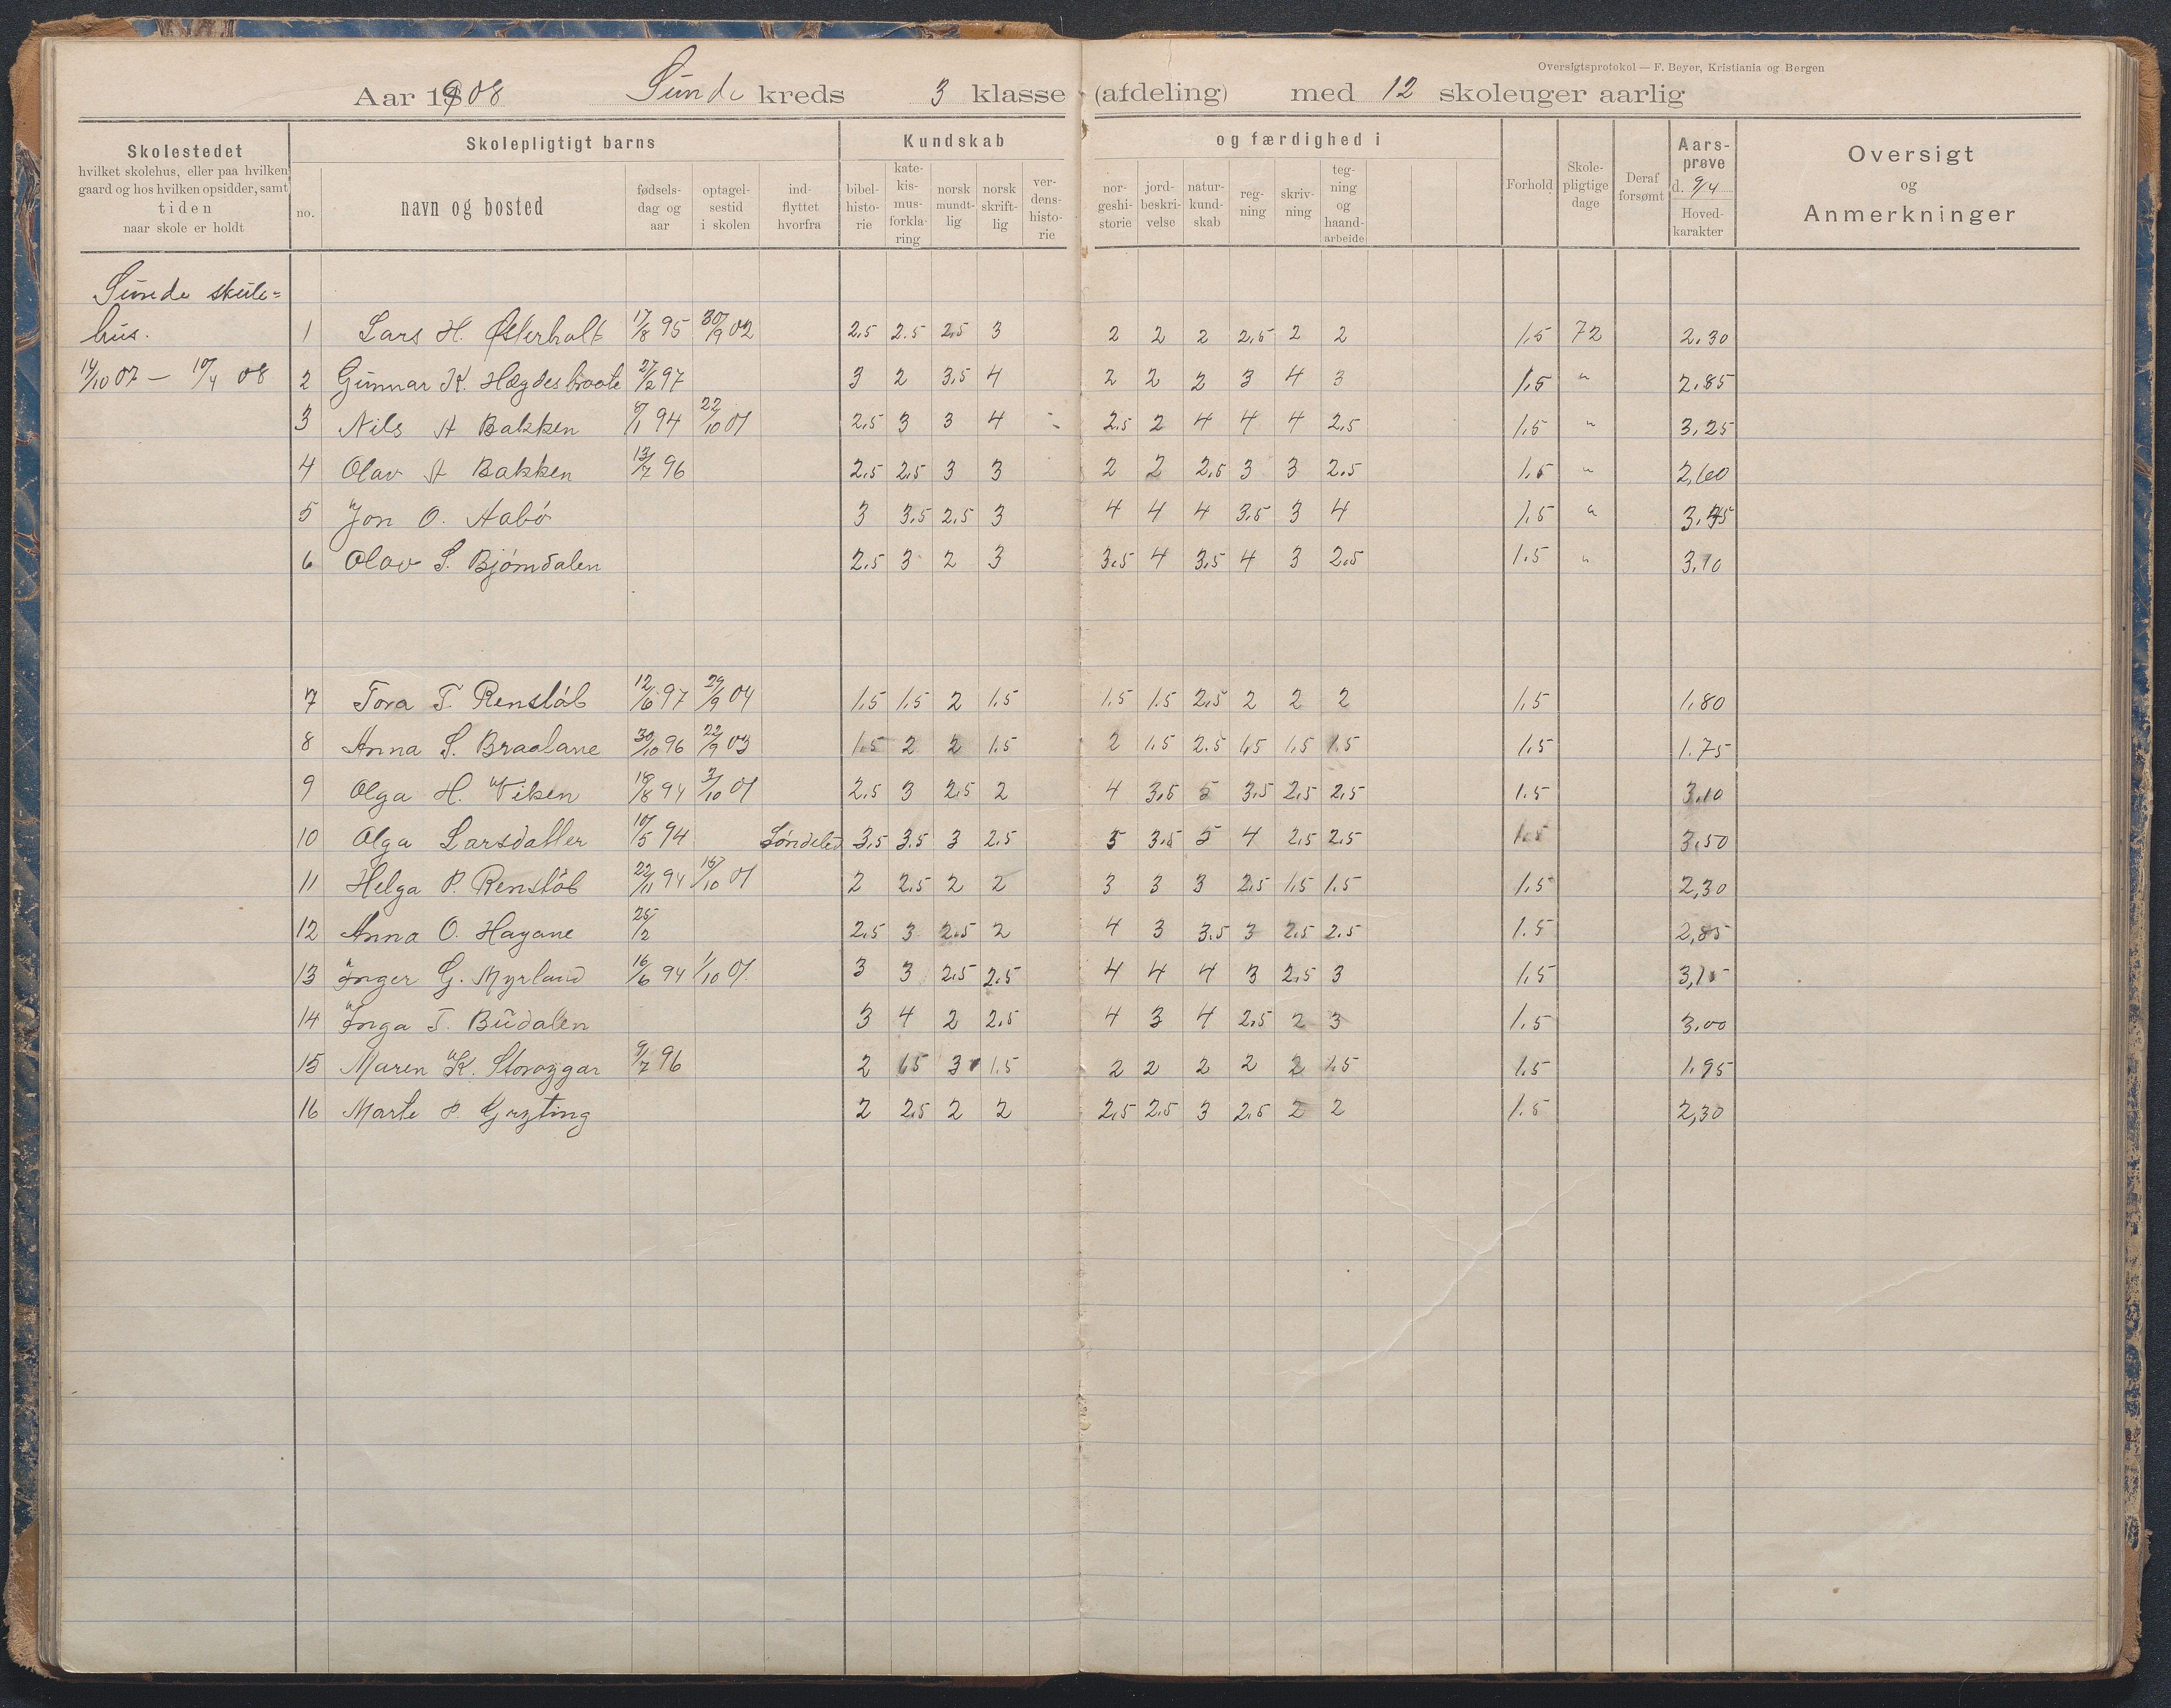 Oversigtsprotokol — F. Beyer, Kristiania og Bergen
Aar 1908 Sunde kreds 3 klasse (afdeling) med 12 skoleuger aarlig
Skolestedet
hvilket skolehus, eller paa hvilken
gaard og hos hvilken opsidder, samt
tiden
naar skole er holdt
Skolepligtigt barns
no.
navn og bosted
fødsels-
dag og
aar
optagel-
sestid
i skolen
ind-
flyttet
hvorfra
Kundskab
bibel-
histo-
rie
kate-
kis-
mus-
forkla-
ring
norsk
mundt-
lig
norsk
skrift-
lig
ver-
dens-
histo-
rie
og færdighed i
nor-
geshi-
storie
jord-
beskri-
velse
natur-
kund-
skab
reg-
ning
skriv-
ning
teg-
ning
og
haand-
arbeide
Forhold
Skole-
pligtige
dage
Deraf
forsømt
Aars-
prøve
d. 9/4
Hoved-
karakter
Oversigt
og
Anmerkninger
Sunde skule=
hus.
14/10 07 — 10/4 08
1 Lars H. Østerholt 17/8 95 30/9 02 2,5 2.5 2,5 3 2 2 2 2,5 2 2 1,5 72 2.30
2 Gunnar K. 27/2 97 3 2 3,5 4 2 2 2 3 4 3 1,5 " 2,85
3 Nils A Bakken 8/1 94 22/10 01 2,5 3 3 4 - 2.5 2 4 4 4 2,5 1,5 " 3,25
4 Olav A Bakken 13/7 96 2,5 2,5 3 3 2 2 2,5 3 3 2.5 1,5 " 2,60
5 Jon O. Aabö 3 3,5 2,5 3 4 4 4 3,5 3 4 1,5 "
6 Olav S. Bjömdalen 2.5 3 2 3 3,5 4 3,5 4 3 2,5 1.5 " 3,10
7 Tora T. Renslöb 12/6 97 29/9 04 1,5 1,5 2 1,5 1,5 1,5 2,5 2 2 2 1,5 1,80
8 Anna S. Braalane 30/10 96 22/9 03 1,5 2 2 1.5 2 1,5 2.5 1,5 1,5 1.5 1,5 1.75
9 Olga H. Viken 18/8 94 3/10 01 2,5 3 2,5 2 4 3,5 5 3,5 2,5 2,5 1.5 3,10
10 Olga Larsdatter 10/5 94 Söndeled 3,5 3.5 3 2,5 5 3,5 5 4 2,5 2,5 1.5 3,50
11 Helga P. Renslöb 22/11 94 15/10 01 2 2,5 2 2 3 3 3 2,5 1,5 1,5 1,5 2,30
12 Anna O. Hagane 25/2 2,5 3 2,5 2 4 3 3,5 3 2,5 2.5 1.5 2,85
13 Inger G. Myrland 16/6 94 1/10 01. 3 3 2,5 2,5 4 4 4 3 2,5 3 1,5 3,15
14 Inga T. Budalen 3 4 2 2,5 4 3 4 2,5 2 3 1,5 3,00
15 Maren K. 9/7 96 2 1,5 3 1.5 2 2 2 2 2 1,5 1,5 1,95
16 Marte P. Gryting 2 2,5 2 2 2,5 2,5 3 2,5 2 2 1.5 2,30